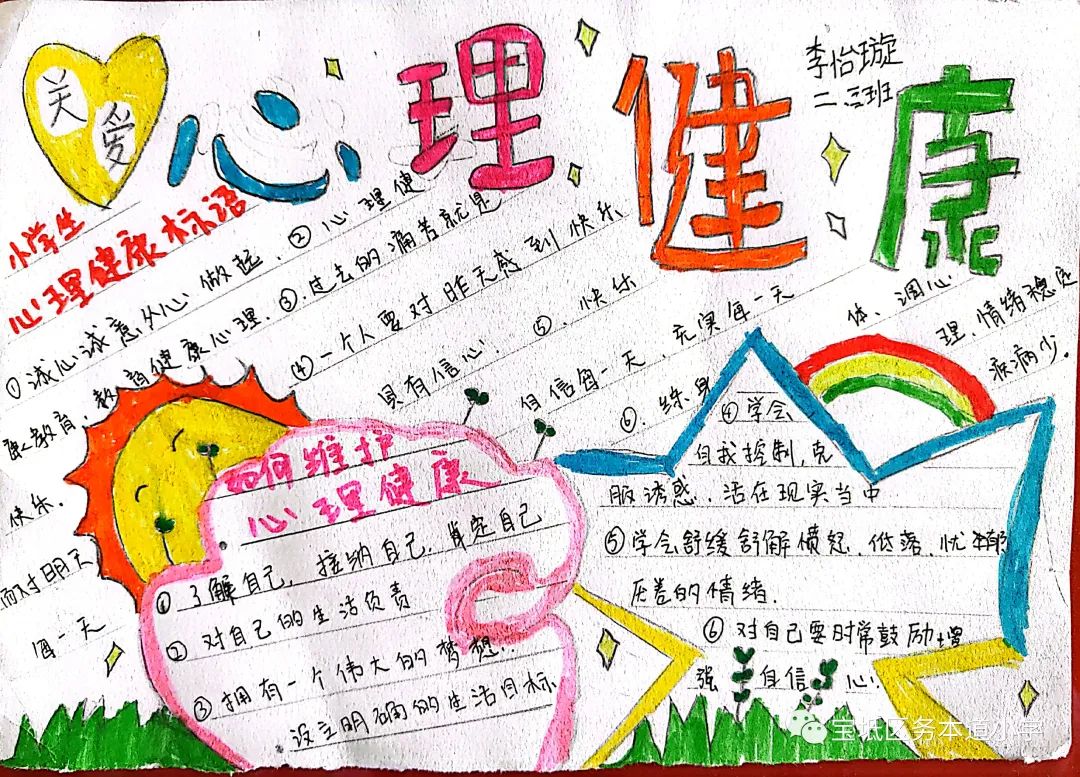 关
爱
心理健康
李怡璇
二.三班
小学生
心理健康标语
①诚心诚意从心做起.②心理健
康教育,教育健康心理.③.过去的痛苦就是
快乐.④一个人要对昨天感到快乐
而对明天具有信心!⑤.快乐
每一天自信每一天、充实每一天
⑥.练身体、调心
理,情绪稳定
疾病少。
如何维护
心理健康
①了解自己,接纳自己,肯定自己
②对自己的生活负责
③拥有一个伟大的梦想.
设立明确的生活目标
④学会
自我控制,克
服诱惑.活在现实当中
⑤学会舒缓舒解愤怒.低落.忧郁
的情绪.
⑥对自己要时常鼓励增
强自信心!
宝坻区务本道小学